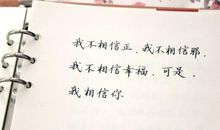 我不相信正,我不相信邪,
我不相信幸福,可是,
我相信你